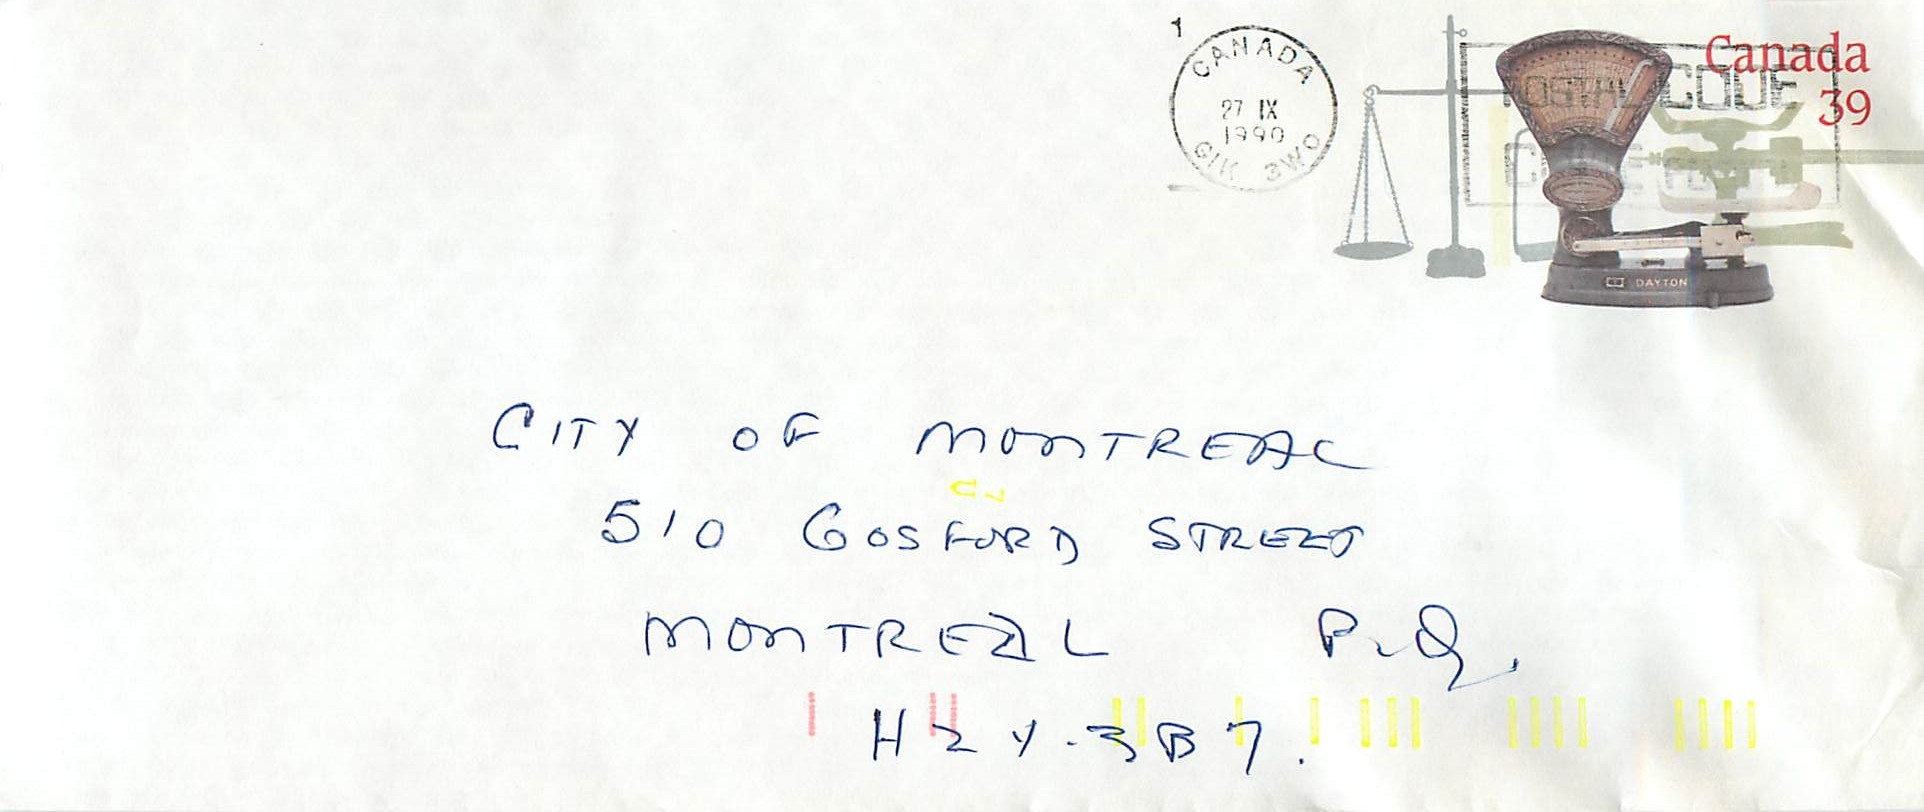 1
CANADA
27 IX
1990
G1K 3W0
POSTAL CODE
Canada
39
DAYTON
CITY OF MONTREAL
510 GOSFORD STREET
MONTREAL P.Q.
H2Y-3B7.